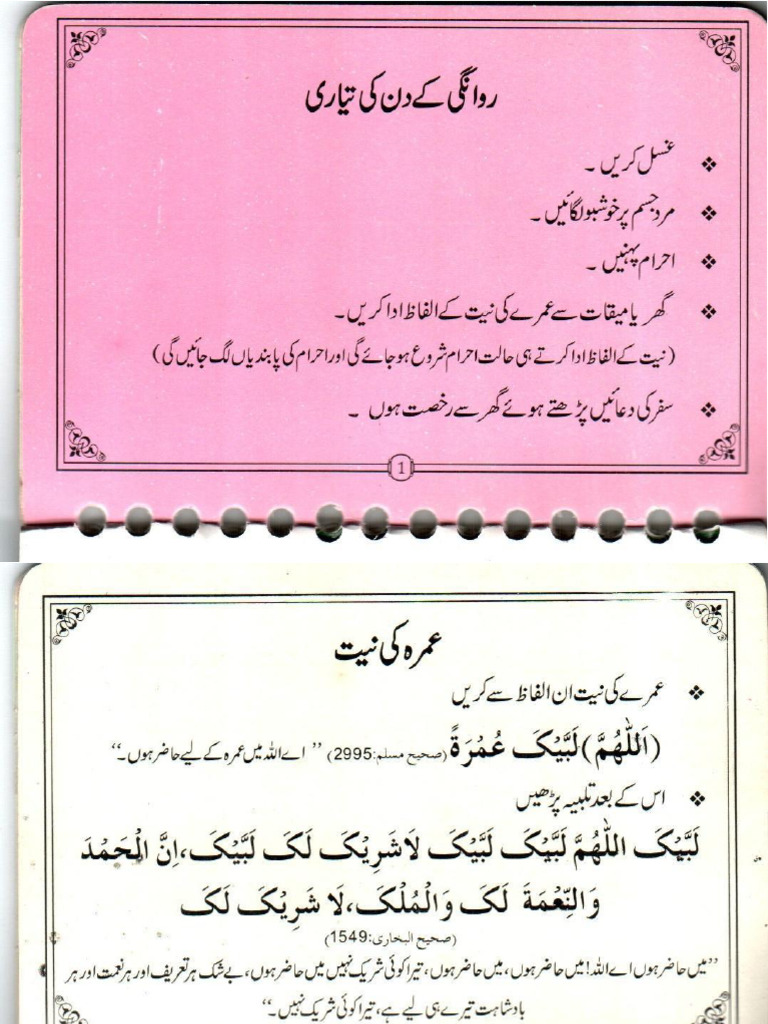 روانگی کے دن کی تیاری
❖ غسل کریں ۔
❖ مرد جسم پر خوشبو لگائیں ۔
❖ احرام پہنیں ۔
❖ گھر یا میقات سے عمرے کی نیت کے الفاظ ادا کریں۔
(نیت کے الفاظ ادا کرتے ہی حالت احرام شروع ہو جائے گی اور احرام کی پابندیاں لگ جائیں گی)
❖ سفر کی دعائیں پڑھتے ہوئے گھر سے رخصت ہوں ۔
1
عمرہ کی نیت
❖ عمرے کی نیت ان الفاظ سے کریں
(اَللّٰهُمَّ) لَبَّيْکَ عُمْرَةً (صحیح مسلم:2995) ”اے اللہ میں عمرہ کے لیے حاضر ہوں۔“
❖ اس کے بعد تلبیہ پڑھیں
لَبَّيْکَ اللّٰهُمَّ لَبَّيْکَ لَبَّيْکَ لَاشَرِيْکَ لَکَ لَبَّيْکَ،اِنَّ الْحَمْدَ
وَالنِّعْمَةَ لَکَ وَالْمُلْکَ،لَا شَرِيْکَ لَکَ
(صحیح البخاری:1549)
”میں حاضر ہوں اے اللہ! میں حاضر ہوں، میں حاضر ہوں، تیرا کوئی شریک نہیں میں حاضر ہوں، بے شک ہر تعریف اور ہر نعمت اور ہر
بادشاہت تیرے ہی لیے ہے، تیرا کوئی شریک نہیں۔“